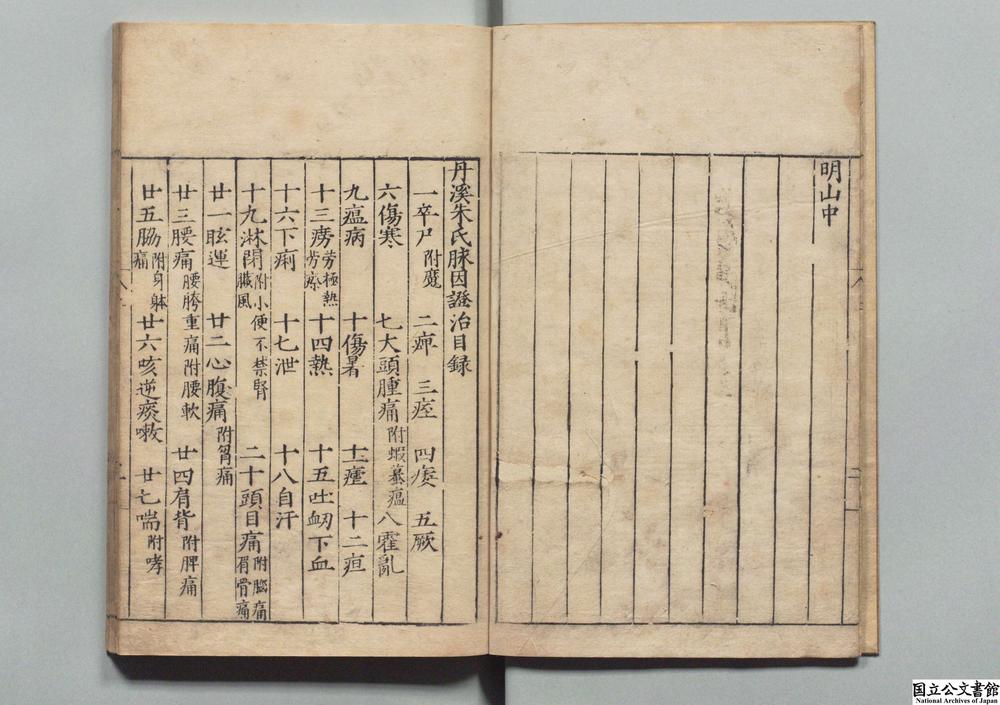 明山中
丹溪朱氏脉因證治目録
一卒尸 附魘 二痹 三痓 四痿 五厥
六傷寒 七大頭腫痛 附蝦蟇瘟 八霍亂
九瘟病 十傷暑 十一瘧 十二疸
十三癆 劳極熱 劳瘵 十四熱 十五吐衂下血
十六下痢 十七泄 十八自汗
十九淋閉 附小便不禁腎臓風 二十頭目痛 附腦痛 眉骨痛
廿一眩運 廿二心腹痛 附胷痛
廿三腰痛 腰胯重痛 附腰軟 廿四肩背 附脾痛
廿五脇痛 附身躰 廿六咳逆痰嗽 廿七喘 附哮
国立公文書館
National Archives of Japan